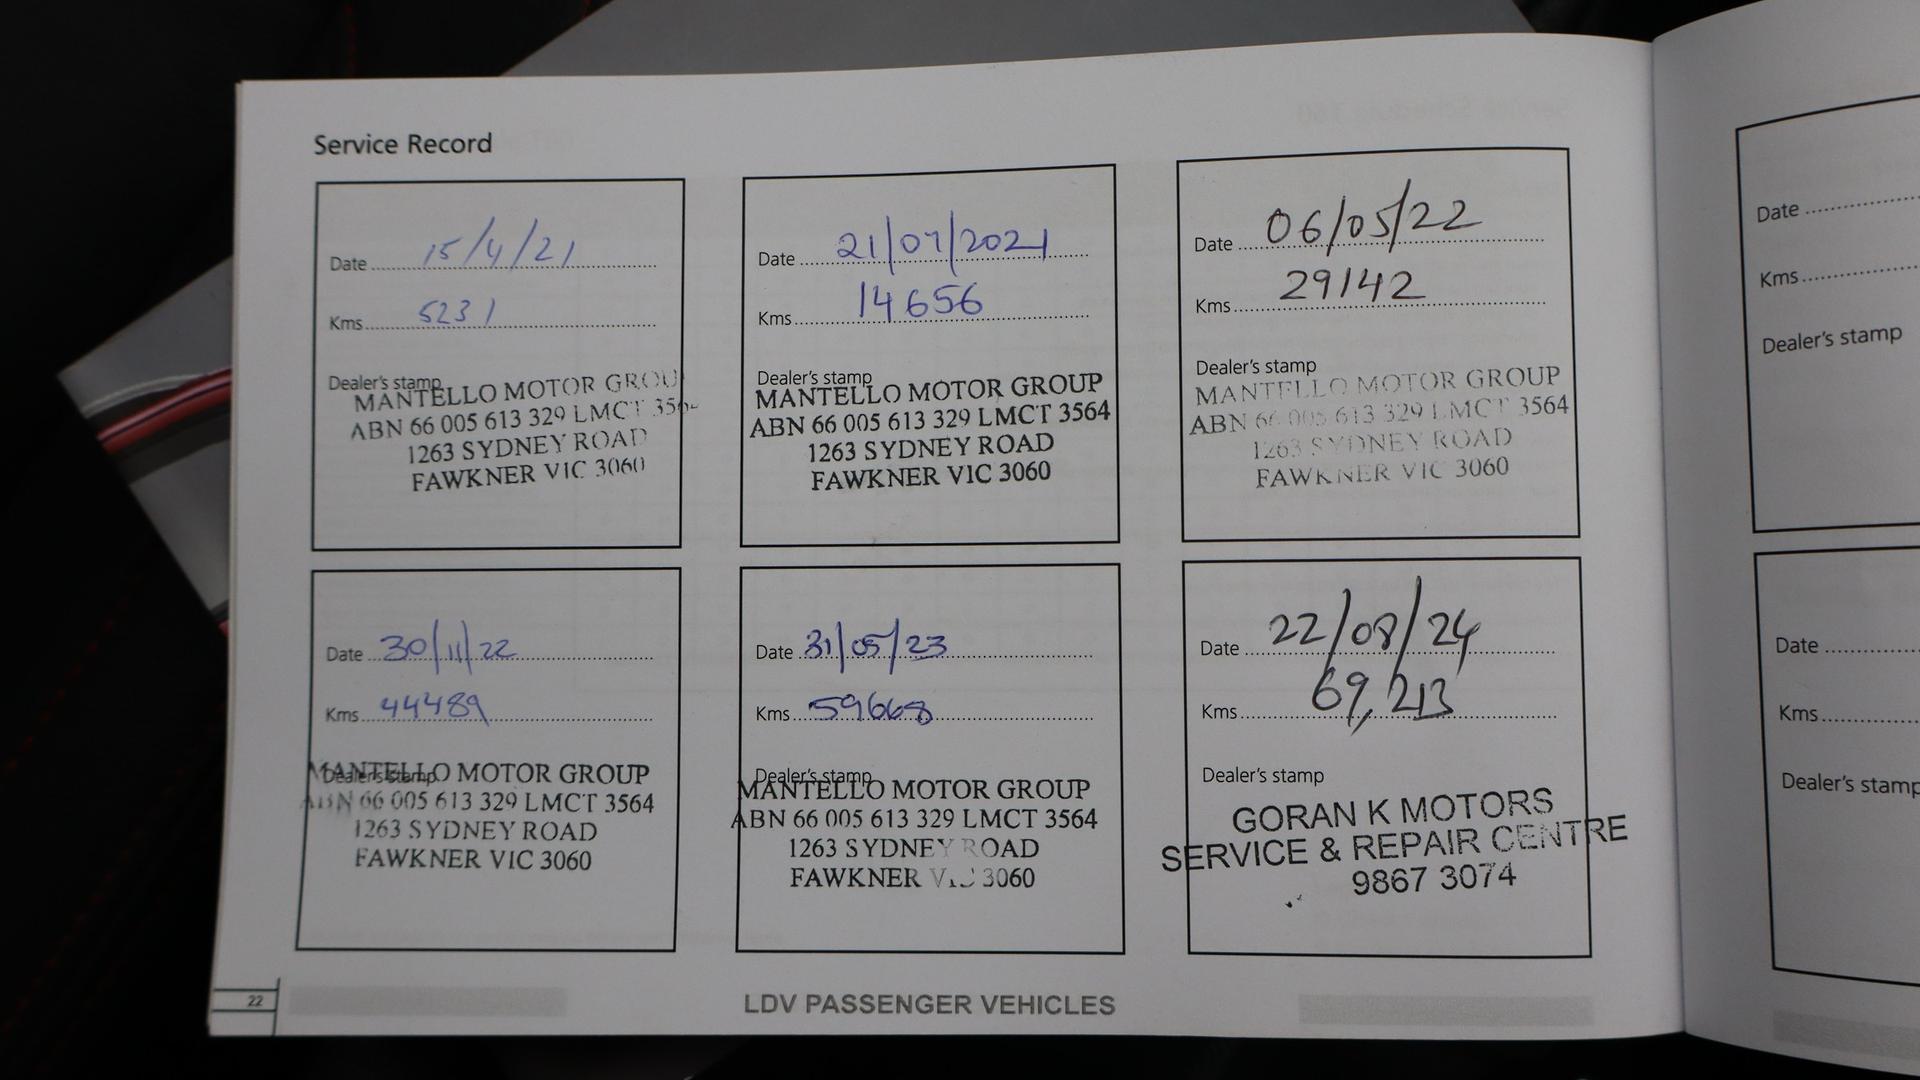 Service Record
Date 15/4/21
Kms 5231
Dealer's stamp
MANTELLO MOTOR GROU
ABN 66 005 613 329 LMCT 3564
1263 SYDNEY ROAD
FAWKNER VIC 3060
Date 21/07/2021
Kms 14656
Dealer's stamp
MANTELLO MOTOR GROUP
ABN 66 005 613 329 LMCT 3564
1263 SYDNEY ROAD
FAWKNER VIC 3060
Date 06/05/22
Kms 29142
Dealer's stamp
MANTELLO MOTOR GROUP
ABN 66 005 613 329 LMCT 3564
1263 SYDNEY ROAD
FAWKNER VIC 3060
Date 30/11/22
Kms 44489
Dealer's stamp
MANTELLO MOTOR GROUP
ABN 66 005 613 329 LMCT 3564
1263 SYDNEY ROAD
FAWKNER VIC 3060
Date 31/05/23
Kms 59668
Dealer's stamp
MANTELLO MOTOR GROUP
ABN 66 005 613 329 LMCT 3564
1263 SYDNEY ROAD
FAWKNER VIC 3060
Date 22/08/24
Kms 69,213
Dealer's stamp
GORAN K MOTORS
SERVICE & REPAIR CENTRE
9867 3074
22
LDV PASSENGER VEHICLES
Date
Kms
Dealer's stamp
Date
Kms
Dealer's stamp